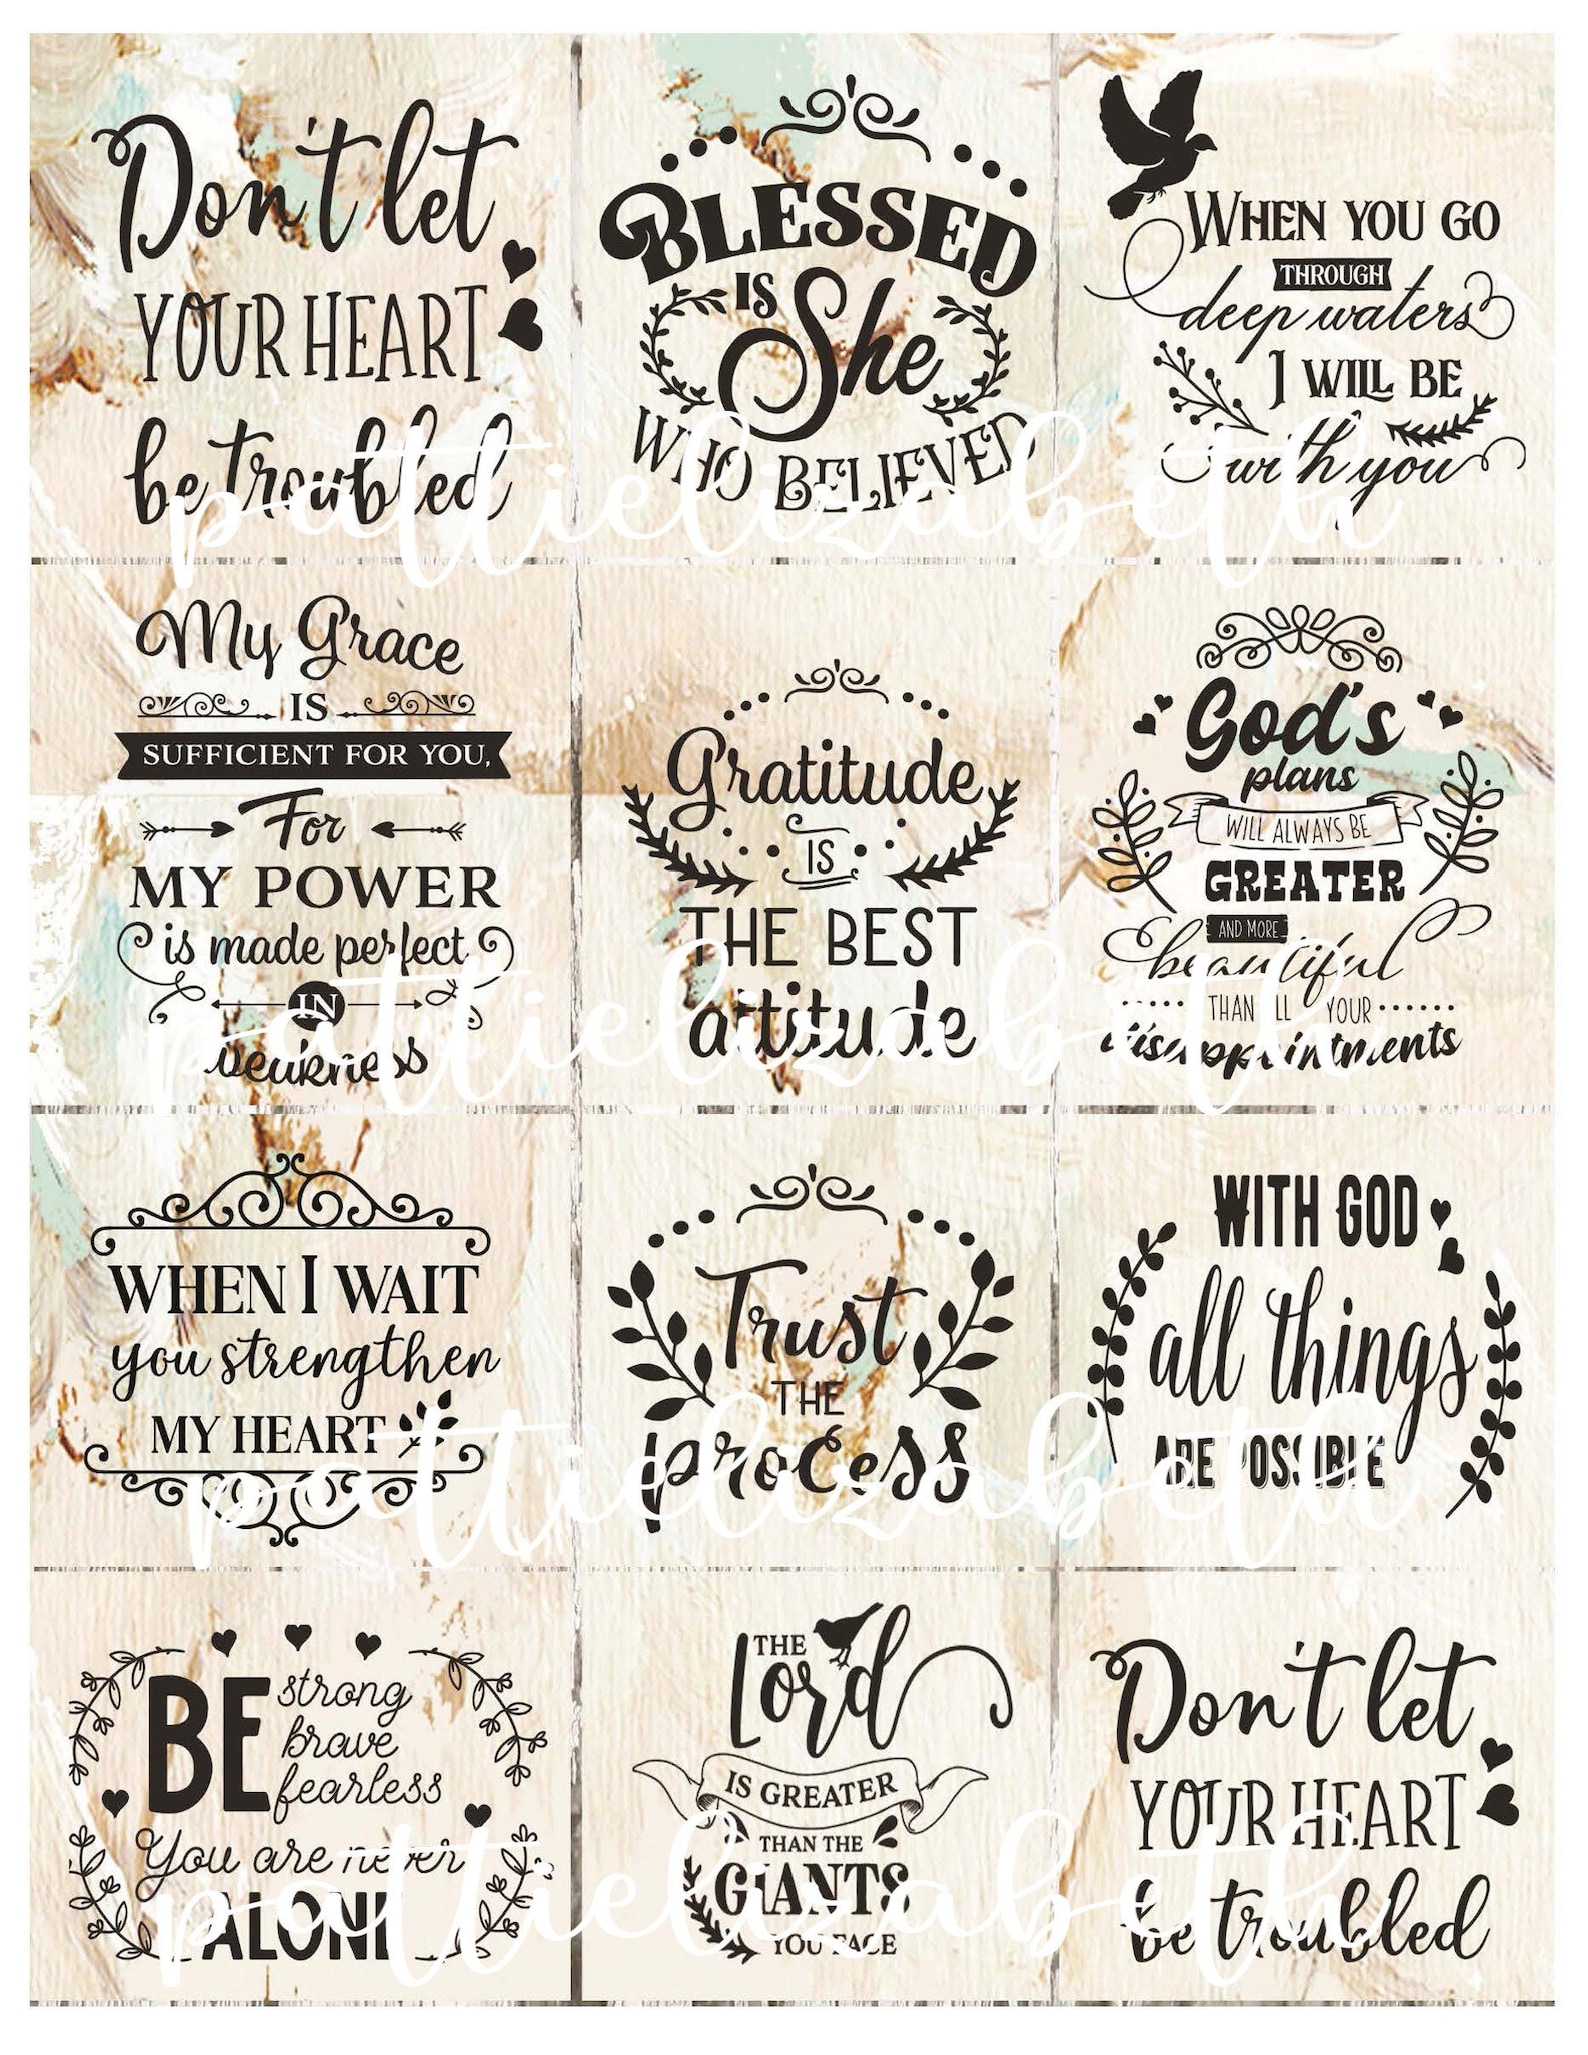 Don't let
YOUR HEART
be troubled
BLESSED
IS
She
WHO BELIEVED
WHEN YOU GO
THROUGH
deep waters
I WILL BE
with you
pattielizabeth
My Grace
IS
SUFFICIENT FOR YOU,
For
MY POWER
is made perfect
IN
weakness
Gratitude
IS
THE BEST
attitude
God's
plans
WILL ALWAYS BE
GREATER
AND MORE
beautiful
THAN ALL YOUR
disappointments
pattielizabeth
WHEN I WAIT
you strengthen
MY HEART
Trust
THE
process
WITH GOD
all things
ARE POSSIBLE
pattielizabeth
BE
strong
brave
fearless
You are never
ALONE
THE
Lord
IS GREATER
THAN THE
GIANTS
YOU FACE
Don't let
YOUR HEART
be troubled
pattielizabeth